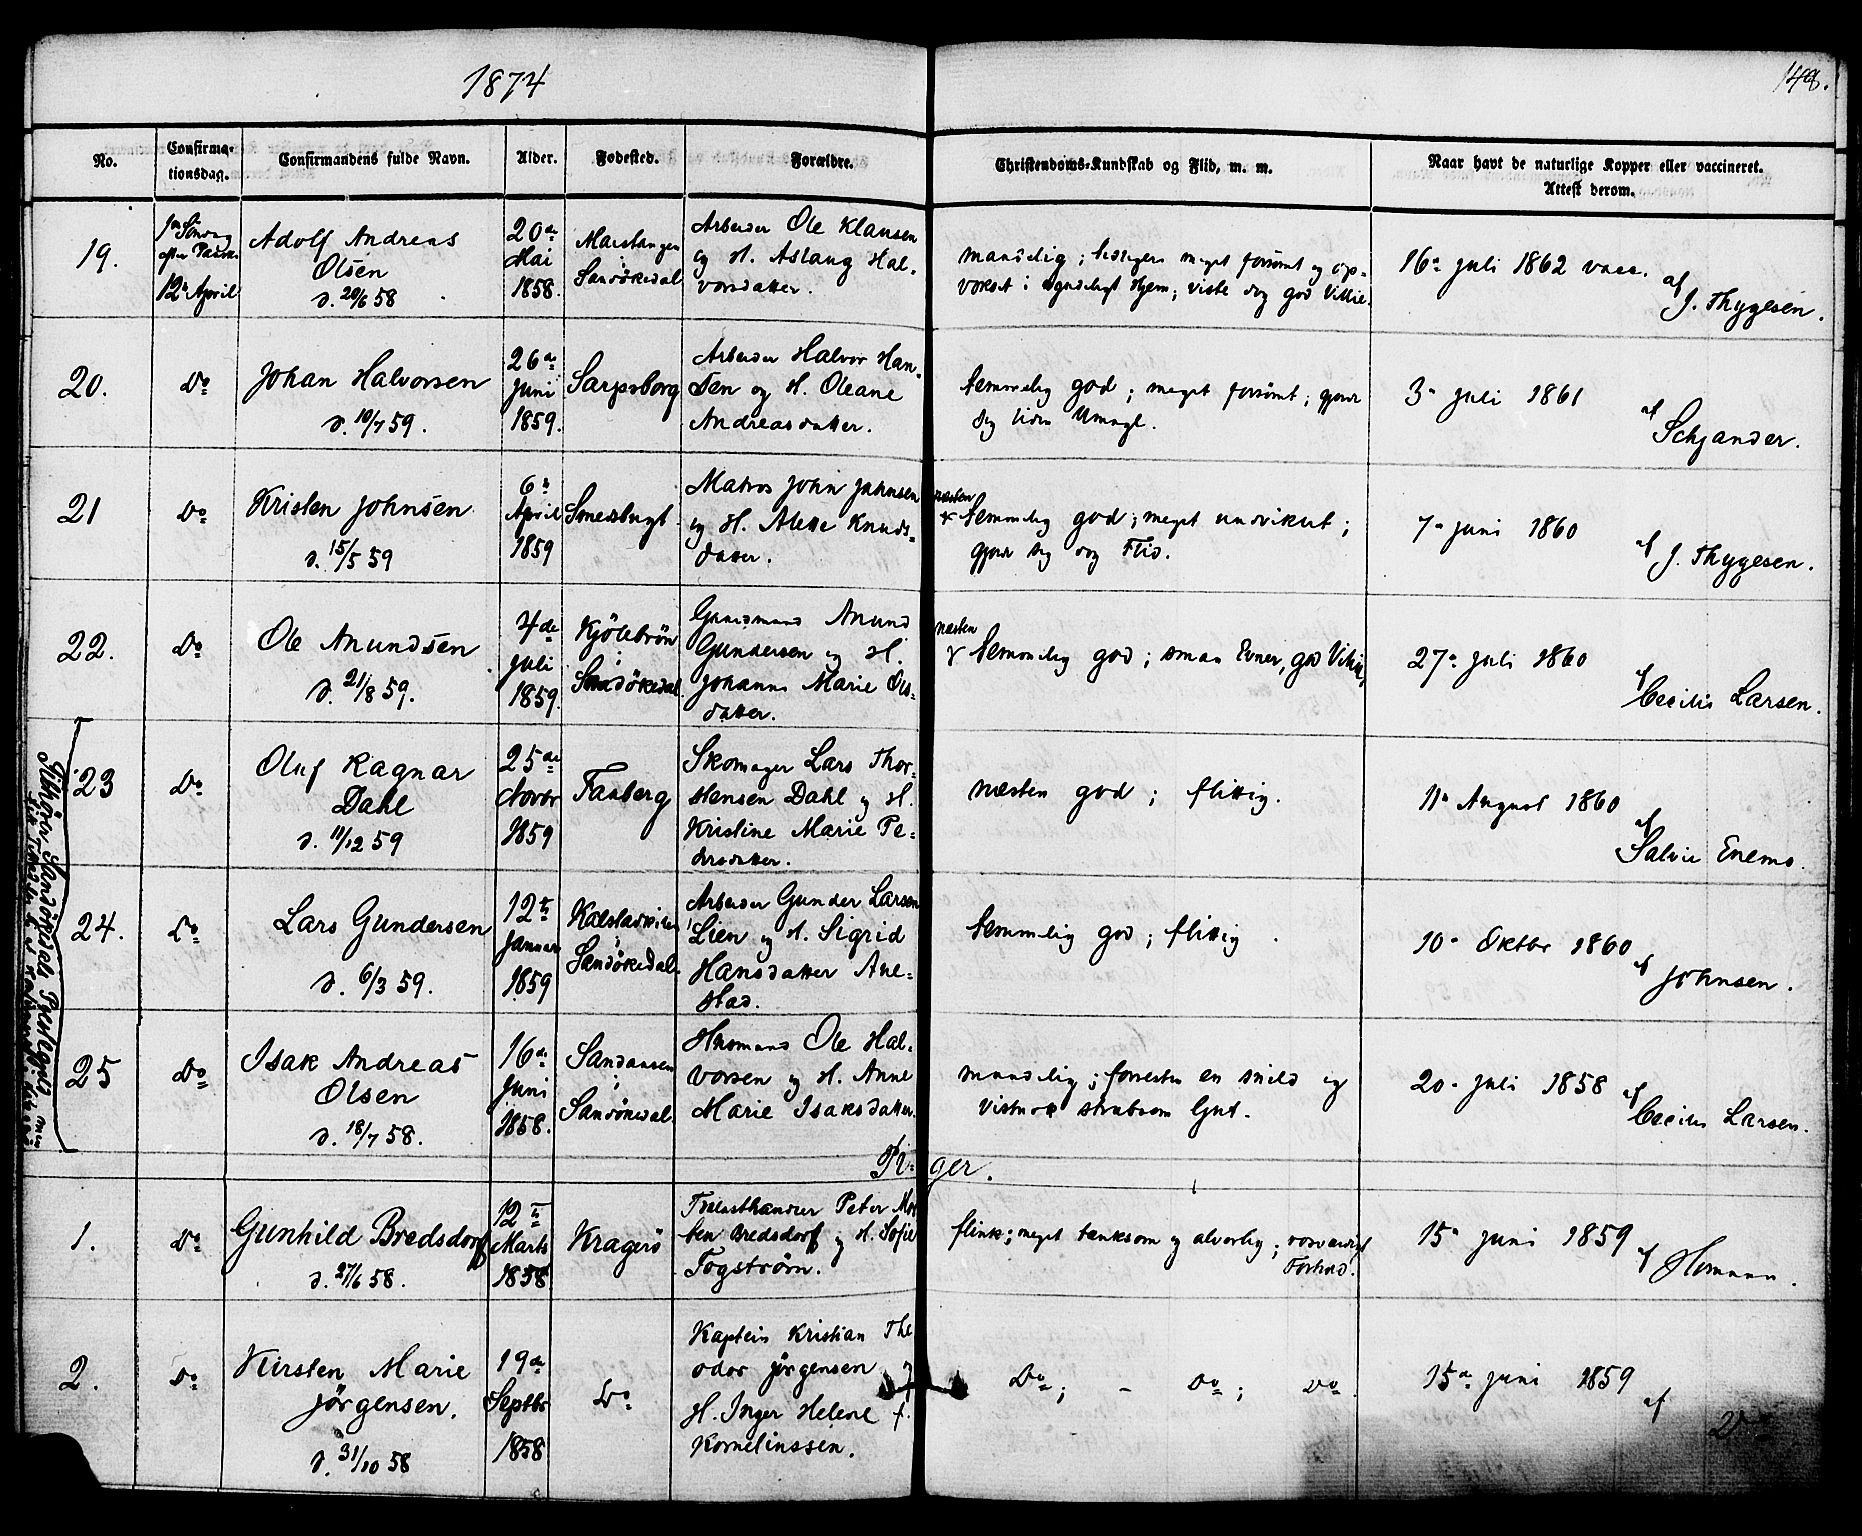 1874
148.
No.
Confirma-
tionsdag.
Confirmandens fulde Navn.
Alder.
Fødested.
Forældre.
Christendoms-Kundskab og Flid, m. m.
Naar havt de naturlige Kopper eller vaccineret.
Attest derom.
19.
1ste Søndag
efter Paaske
12te April
Adolf Andreas
Olsen
d. 20/6 58
20de
Mai
1858.
Sandökedal
Arbeider Ole Klausen
og H. Aslaug Hal-
vorsdatter.
maadelig; meget forsömt og op-
vokset i Hjem; viste dog god Villie.
16de Juli 1862 vacc.
af
J. Thygesen.
20.
Do
Johan Halvorsen
d. 10/7 59.
26de
Juni
1859.
Sarpsborg
Arbeider Halvor Han-
sen og H. Oleane
Andreasdatter.
temmelig god; meget forsömt; gjorde
sig liden Umage.
3de Juli 1861
af
Schjander.
21
Do
Kristen Johnsen
d. 15/5 59
6te
April
1859
Smedsbugt
Matros John Johnsen
og H. Alette Knuds-
datter.
næsten
temmelig god; meget uudviklet;
gjorde sig dog Flid.
7de Juni 1860
af
J. Thygesen.
22.
Do
Ole Anundsen
d. 21/8 59.
4de
Juli
1859
Kjölebrön
i
Sandökedal
Gaardmand Anund
Gundersen og H.
Johanne Marie Ols-
datter.
næsten
temmelig god; smaa Evner, god Villie,
27de Juli 1860
af
Cecilie Larsen.
23
Do
Oluf Ragnar
Dahl
d. 11/12 59
25de
Novbr
1859
Faaberg
Skomager Lars Thor-
stensen Dahl og H.
Kristine Marie Pe-
dersdatter.
næsten god; flittig.
11te August 1860
af
Salvie Enemo.
Tilhører Sandökedals Præstegjeld
24.
Do
Lars Gundersen
d. 6/3 59.
12te
Januar
1859
i
Sandökedal.
Arbeider Gunder Larsen
Lien og H. Sigrid
Hansdatter Ave-
stad.
temmelig god; flittig.
10de Oktbr 1860
af
Johnsen.
25
Do
Isak Andreas
Olsen
d. 18/7 58.
16de
Juni
1858.
Sandaasen
i
Sandökedal.
Husmand Ole Hal-
vorsen og H. Anne
Marie Isaksdatter.
maadelig; forresten en snild og
vistnok stræbsom Gut.
20de Juli 1858
af
Cecilie Larsen.
Pi-ger.
1.
Do
Gunhild Bredsdorf
d. 27/6 58.
12te
Marts
1858
Kragerö
Trælasthandler Peter Mor
ten Bredsdorf og H. Sofie
Fogström.
flink; meget tænksom og alvorlig; rosværdigt
Forhold.
15de Juni 1859
af
Homann.
2.
Do
Kirsten Marie
Jörgensen.
d. 31/10 58
19de
Septbr
1858
Do
Kaptein Kristian The
odor Jörgensen og
H. Inger Helene f.
Kornelinssen.
Do; - Do; Do
15de Juni 1859
af
Do